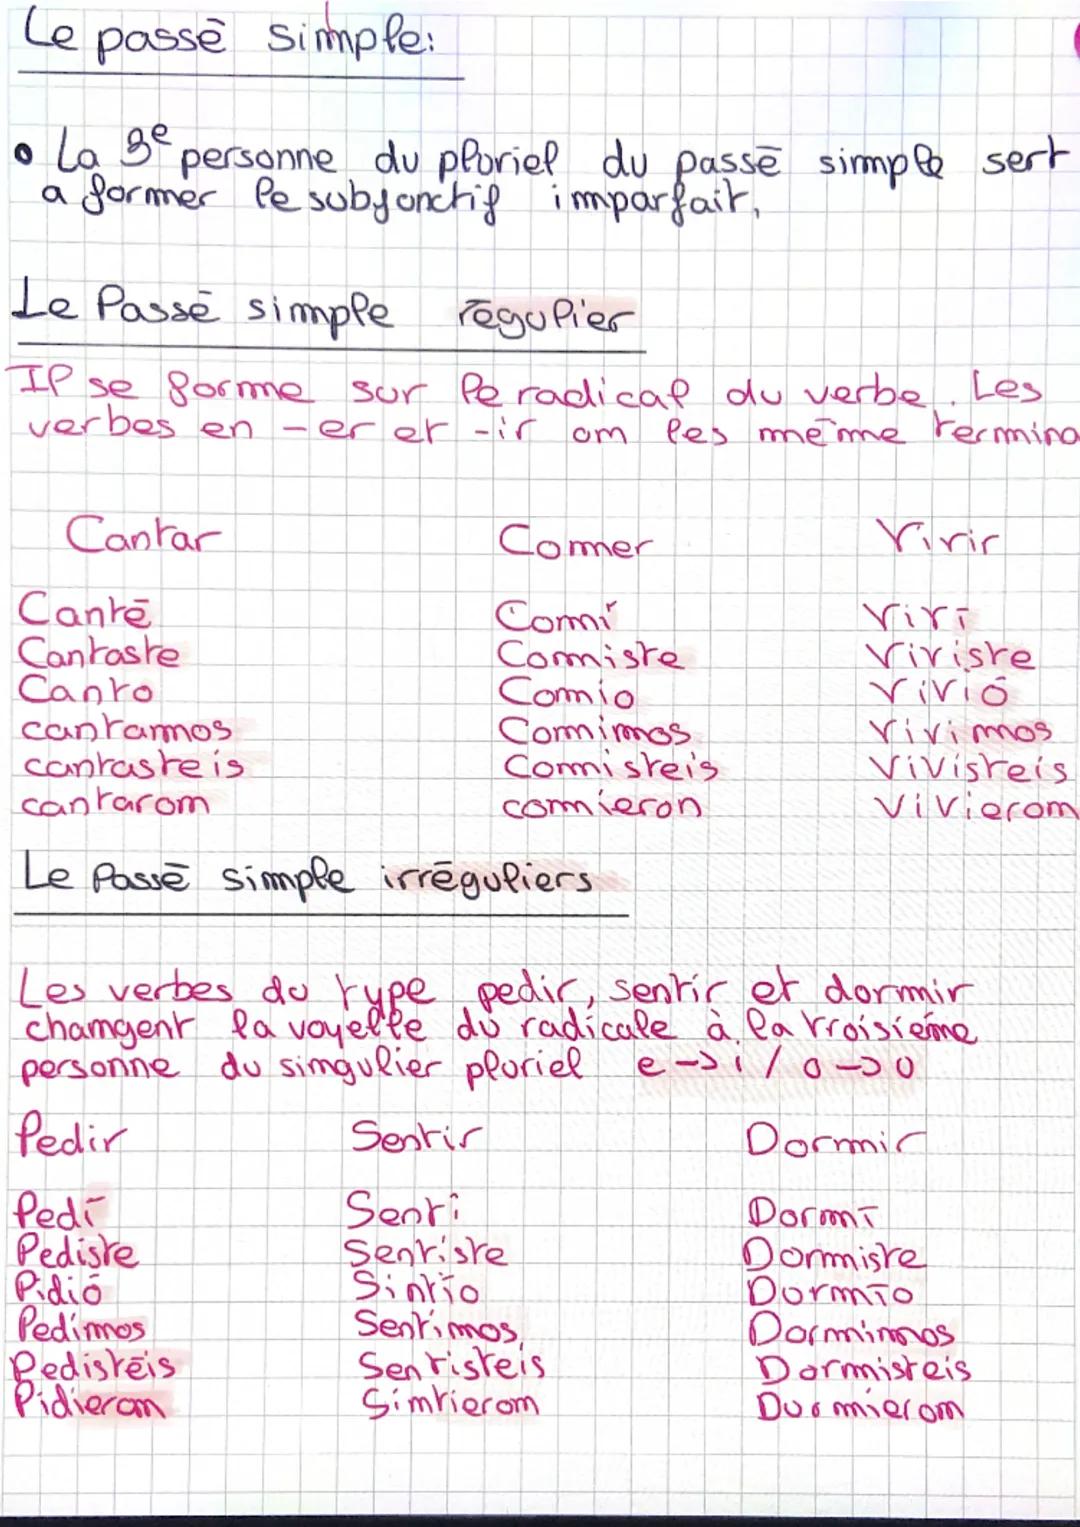 Le passé simple:
• La 3e personne du pluriel du passé simple sert
a former le subjonctif imparfait.
Le Passé simple régulier
Il se forme sur le radical du verbe. Les
verbes en -er et -ir om les même termina
Cantar Comer Vivir
Canté Comí Viví
Cantaste Comiste Viviste
Canto Comio Vivió
cantamos Comimos Vivimos
cantasteis Comisteis Vivisteis
cantarom comieron Vivierom
Le Passé simple irréguliers
Les verbes du type pedir, sentir et dormir
changent la voyelle du radicale à la troisième
personne du singulier pluriel e->i / o->u
Pedir Sentir Dormir
Pedí Sentí Dormí
Pediste Sentiste Dormiste
Pidió Sintío Durmío
Pedimos Sentimos Dormimos
Pedistéis Sentisteis Dormisteis
Pidierom Simtierom Durmierom